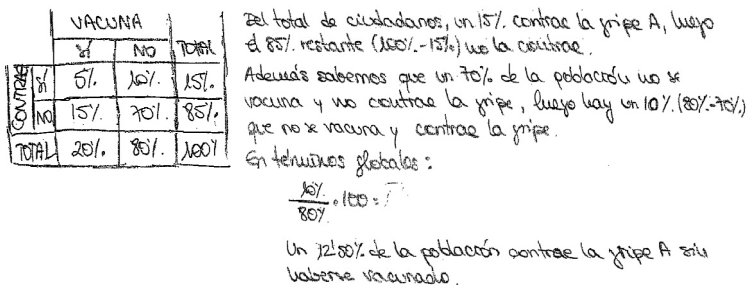 VACUNA
SÍ NO TOTAL
CONTRAE SÍ 5% 10% 15%
NO 15% 70% 85%
TOTAL 20% 80% 100%
Del total de ciudadanos, un 15% contrae la gripe A, luego
el 85% restante (100%-15%) no la contrae.
Además sabemos que un 70% de la población no se
vacuna y no contrae la gripe, luego hay un 10% (80%-70%)
que no se vacuna y contrae la gripe.
En términos globales:
10%
80%
. 100 =
Un 12'50% de la población contrae la gripe A sin
haberse vacunado.